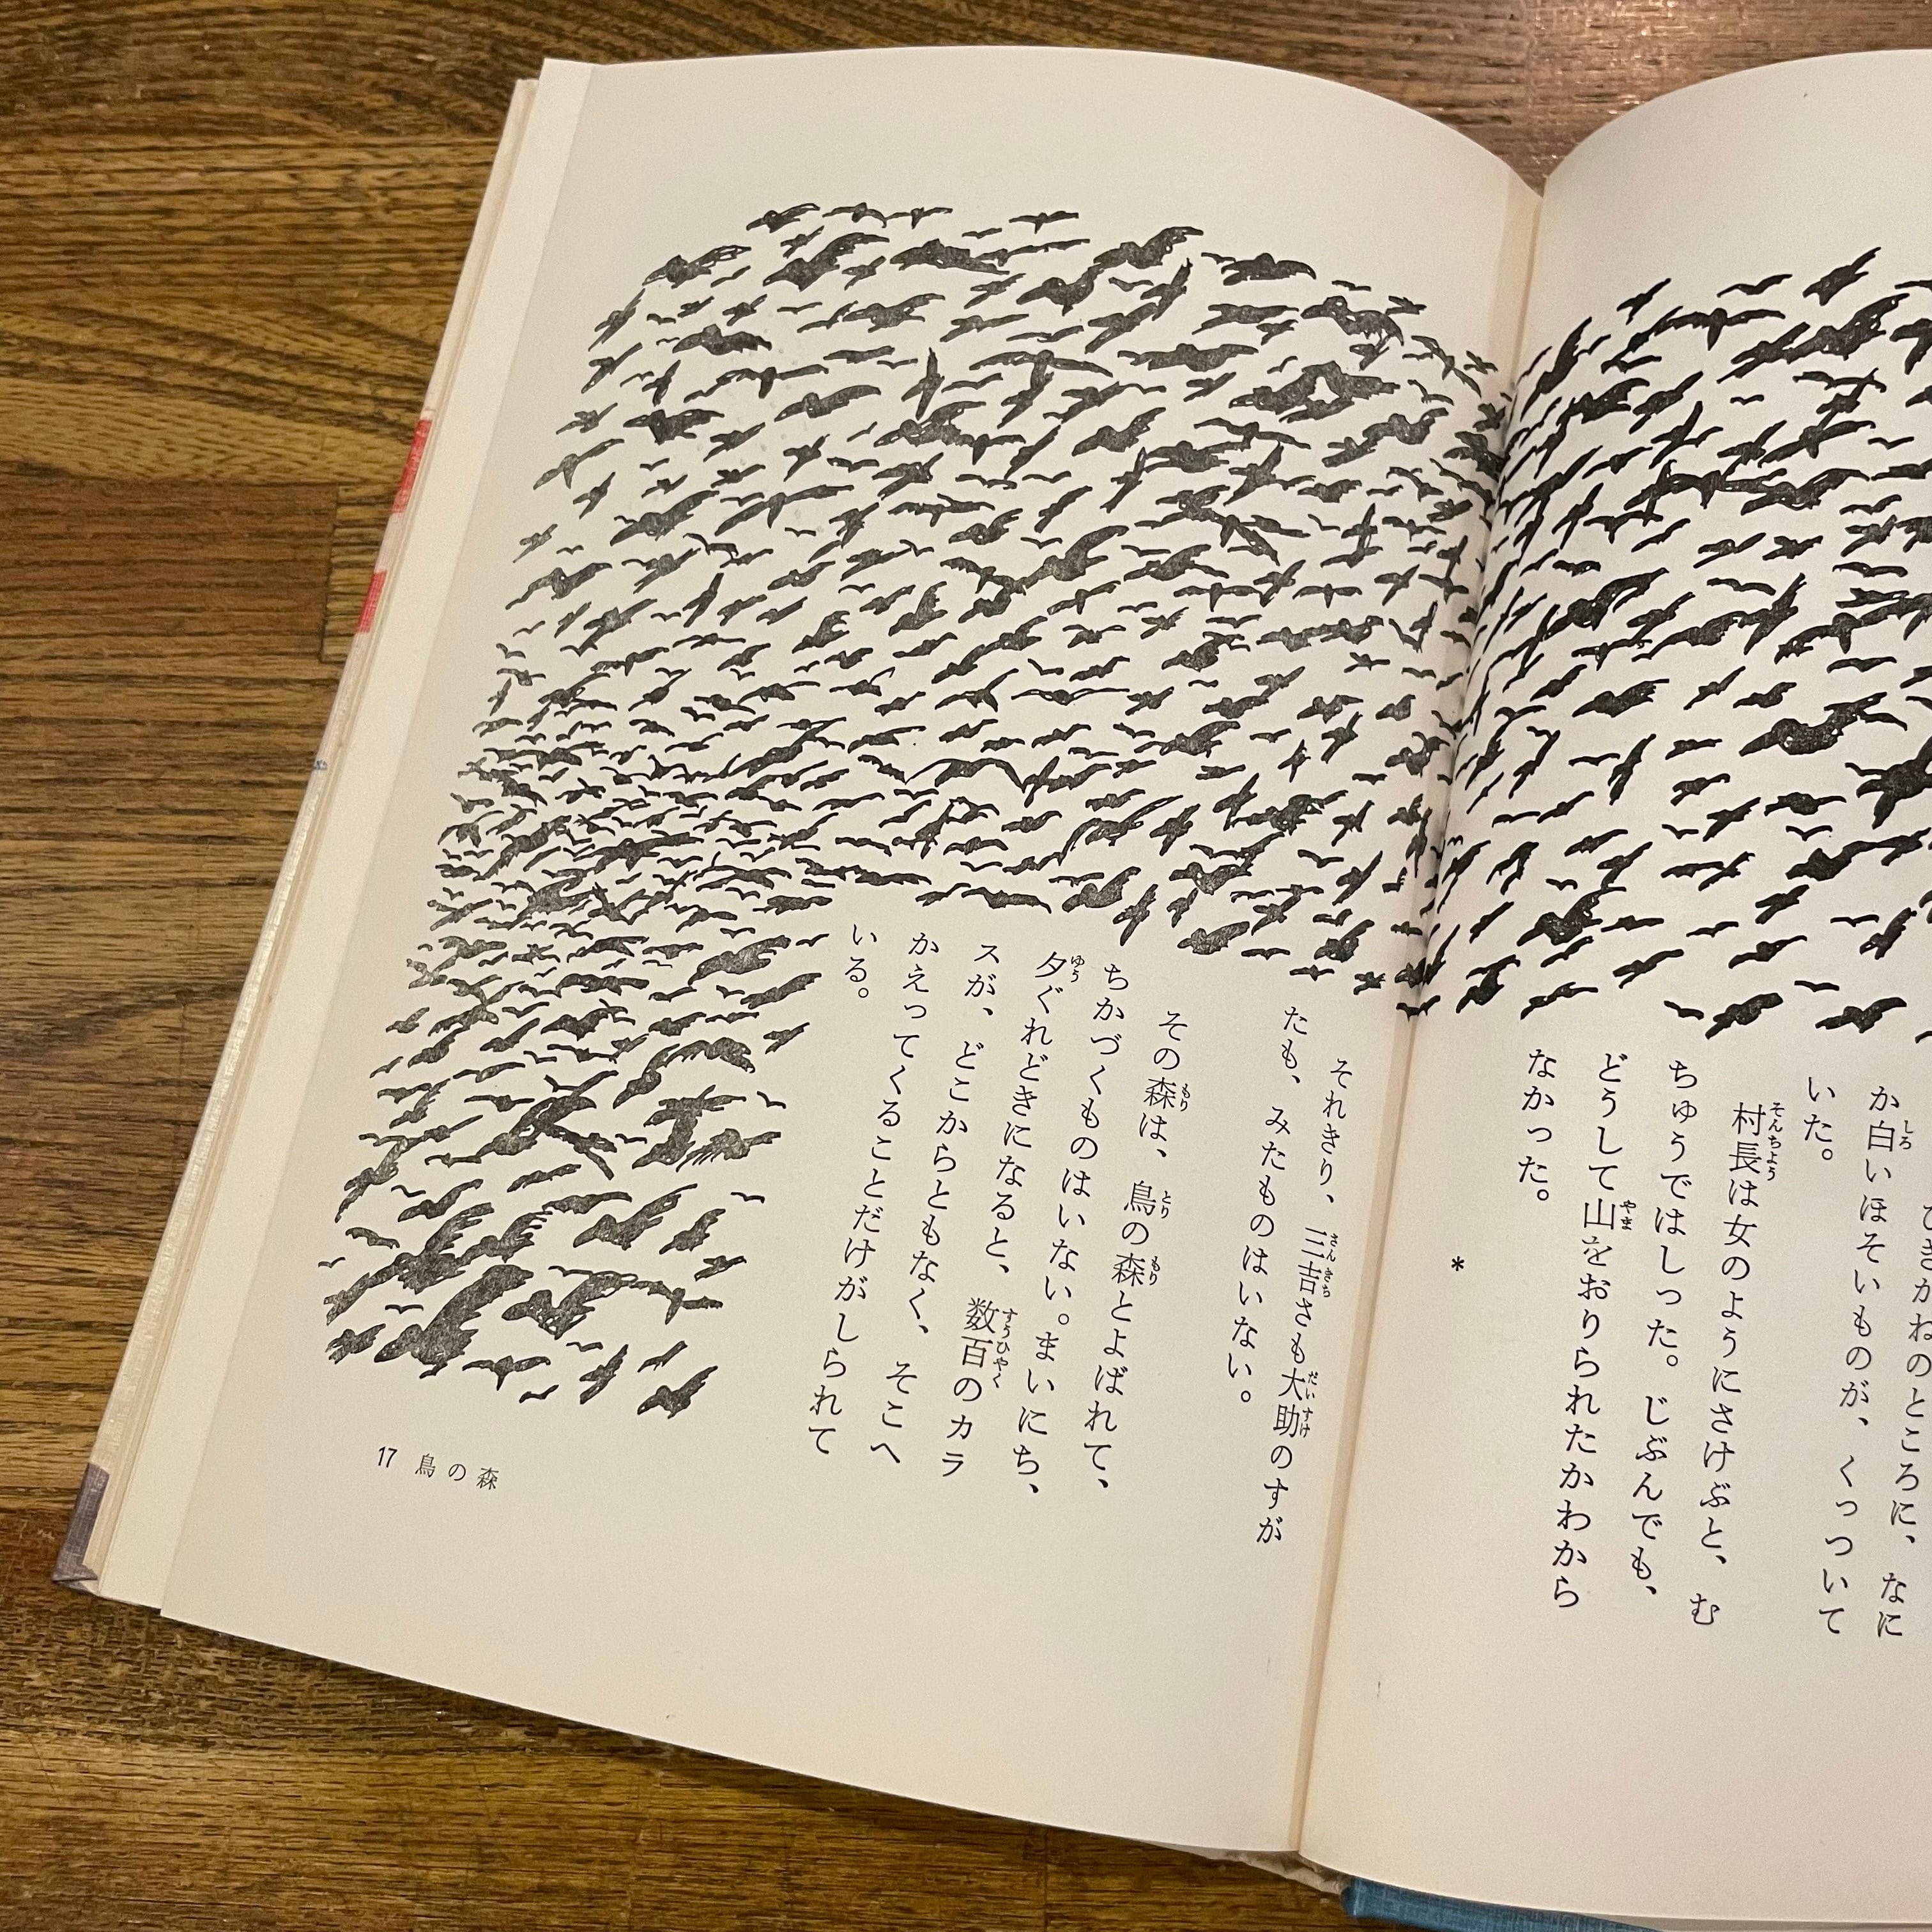 ひきがねのところに、なに
か白いほそいものが、くっついて
いた。
村長は女のようにさけぶと、む
ちゅうではしった。じぶんでも、
どうして山をおりられたかわから
なかった。
*
それきり、三吉さも大助のすが
たも、みたものはいない。
その森は、鳥の森とよばれて、
ちかづくものはいない。まいにち、
夕ぐれどきになると、数百のカラ
スが、どこからともなく、そこへ
かえってくることだけがしられて
いる。
17 鳥の森